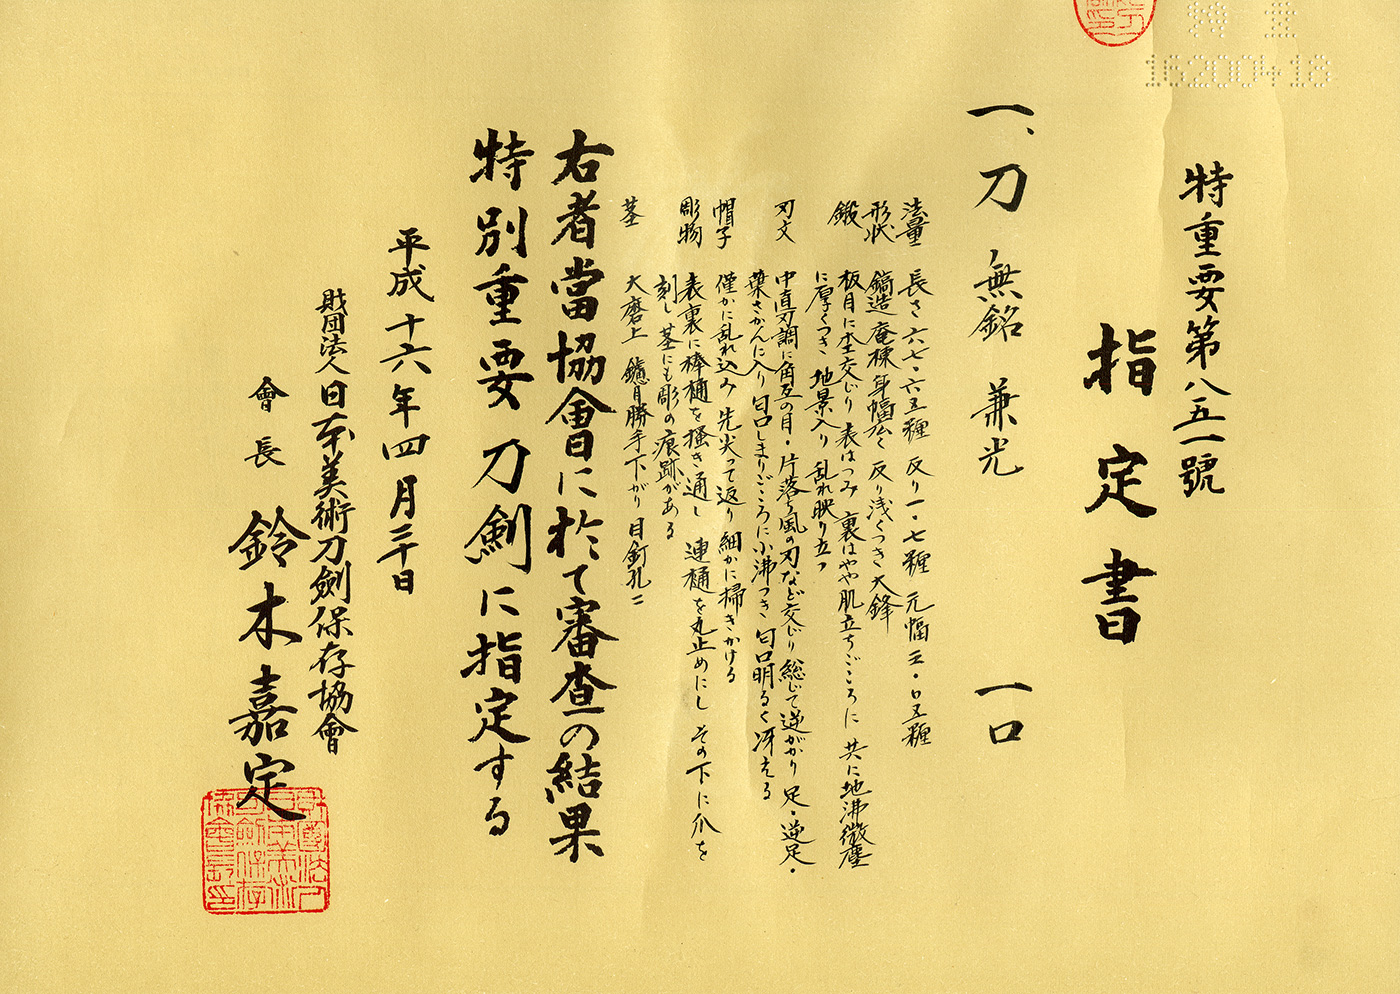 特重要第八五一號
指定書
一、刀 無銘 兼光 一口
法量 長さ六七・六五糎 反り一・七糎 元幅三・口五糎
形状 鎬造 庵棟 身幅広く 反り浅くつき 大鋒
鍛 板目に杢交じり 表はつみ 裏はやや肌立ちごころに 共に地沸微塵
に厚くつき 地景入り 乱れ映り立つ
刃文 中直刃調に角互の目・片落ち風の刃など交じり 総じて逆がかり 足・逆足・
葉さかんに入り 匂口しまりごころに小沸つき 匂口明るく冴える
帽子 僅かに乱れ込み 先尖って返り 細かに掃きかける
彫物 表裏に棒樋を掻き通し 連樋を丸止めにし その下に爪を
刻し 茎にも彫の痕跡がある
茎 大磨上 鑢目勝手下がり 目釘孔二
右者當協會に於て審査の結果
特別重要刀剣に指定する
平成十六年四月三十日
財団法人日本美術刀劍保存協會
會長 鈴木嘉定
16200418